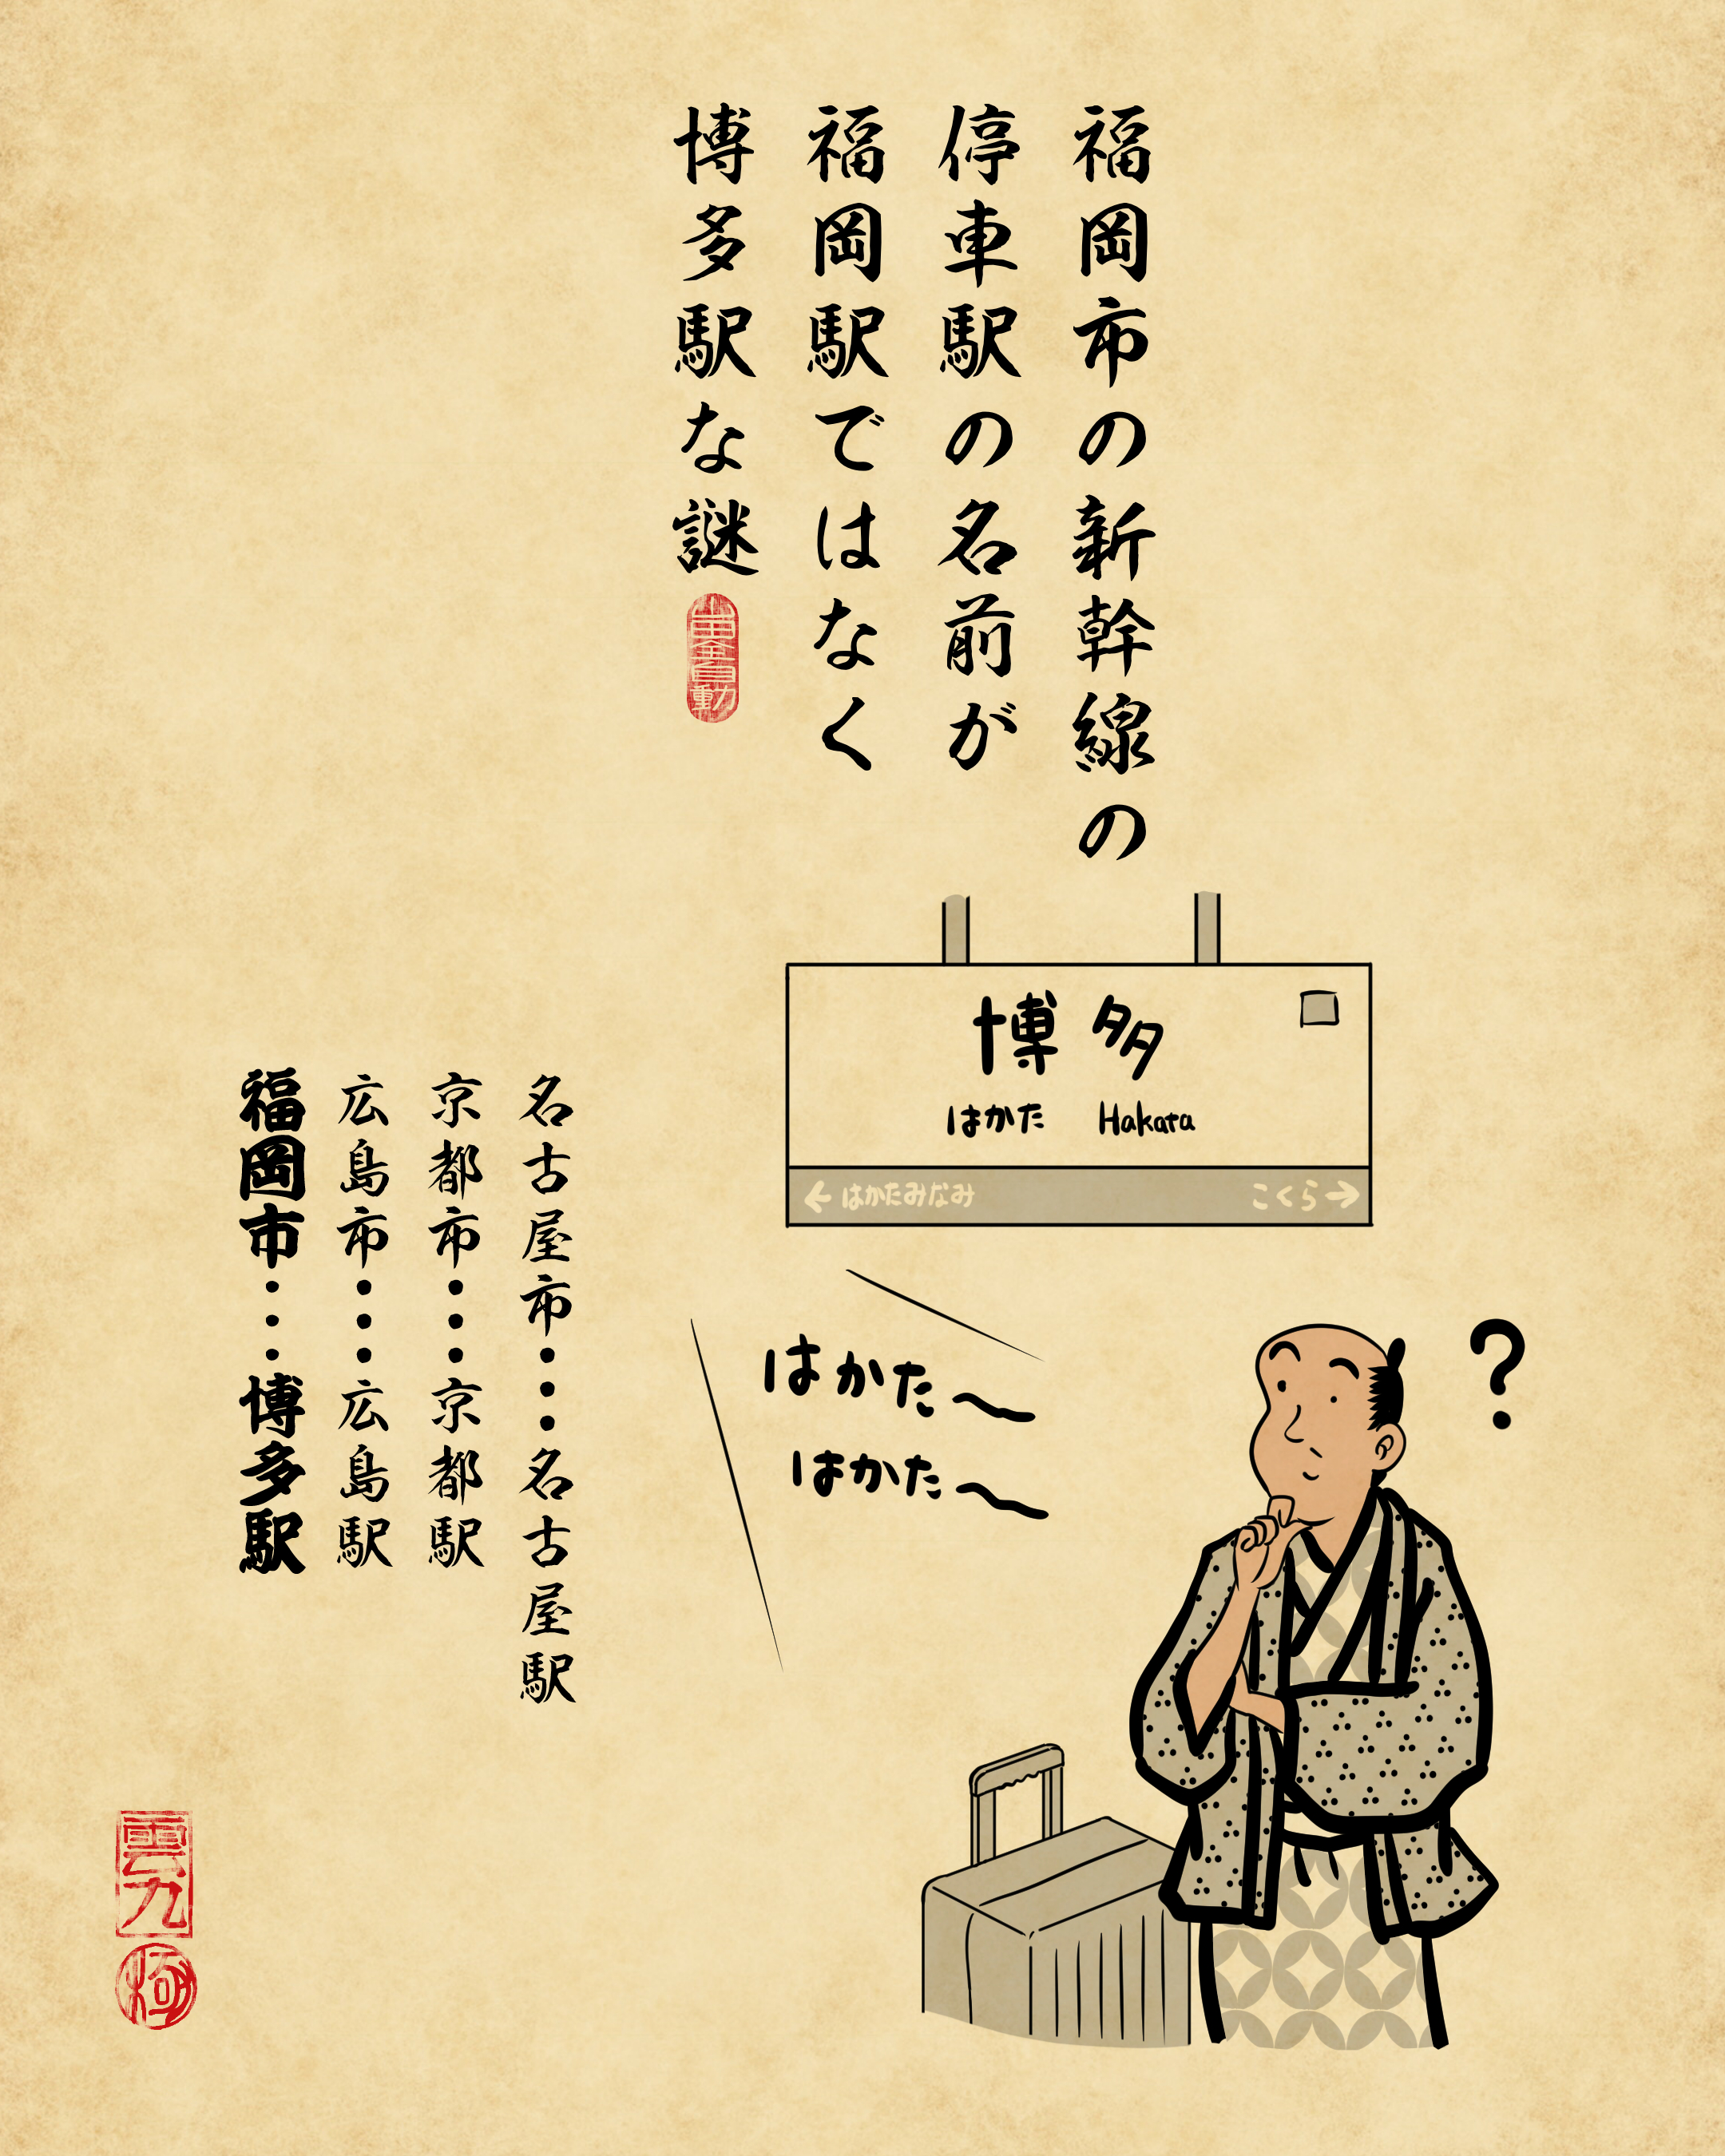 福岡市の新幹線の
停車駅の名前が
福岡駅ではなく
博多駅な謎
山田全自動
博多
はかた Hakata
←はかたみなみ こくら→
はかた〜
はかた〜
?
名古屋市・・・名古屋駅
京都市・・・京都駅
広島市・・・広島駅
福岡市・・・博多駅
雲丸
極